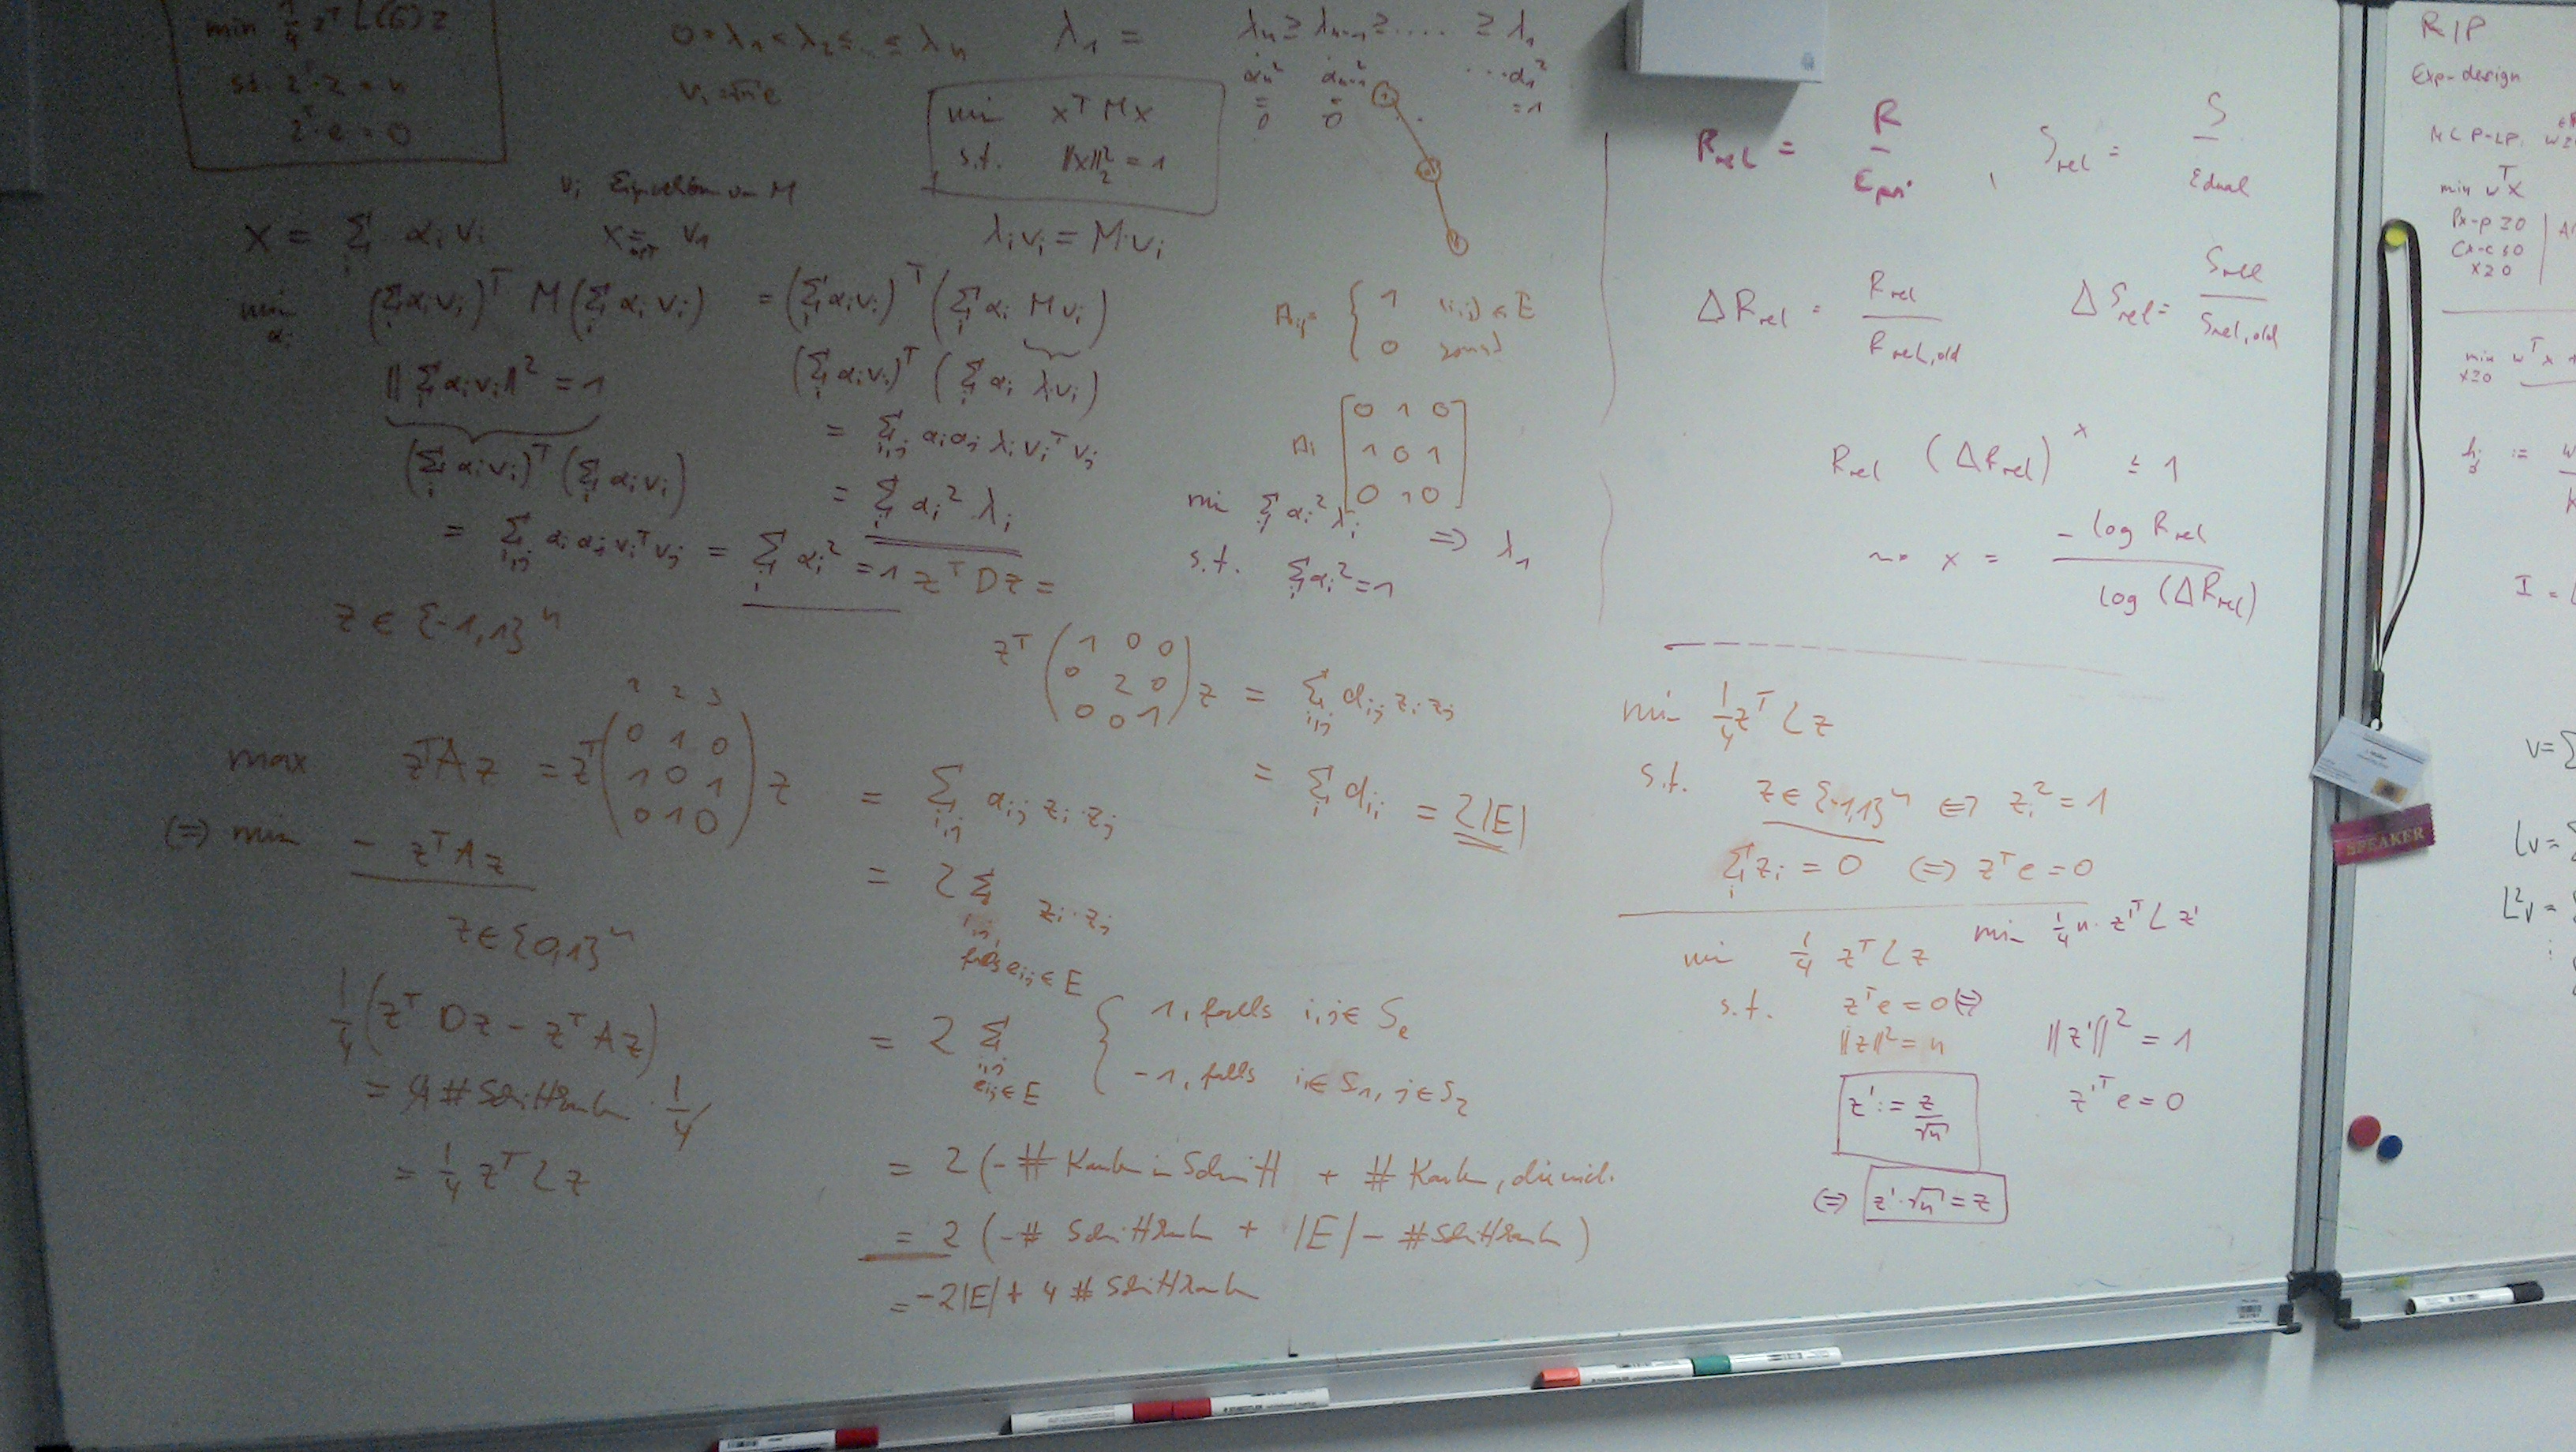 min 1/4 z^T L(G) z
s.t. z^T·z = n
z^T·e = 0
0 = λ_1 ≤ λ_2 ≤ … ≤ λ_n
λ_1 =
λ_n ≥ λ_{n-1} ≥ .... ≥ λ_1
α_n^2 α_{n-1}^2 ... α_1^2
= = = 1
0 0
min x^T M x
s.t. ||x||_2^2 = 1
v_i Eigenvektoren von M
x = Σ_i α_i v_i
x =_{opt} v_1
λ_i v_i = M·v_i
min_{α_i} (Σ_i α_i v_i)^T M (Σ_i α_i v_i) = (Σ_i α_i v_i)^T (Σ_i α_i M v_i)
||Σ_i α_i v_i||^2 = 1
(Σ_i α_i v_i)^T (Σ_i α_i λ_i v_i)
(Σ_i α_i v_i)^T (Σ_i α_i v_i)
= Σ_{i,j} α_i α_j λ_i v_i^T v_j
= Σ_i α_i^2 λ_i
= Σ_{i,j} α_i α_j v_i^T v_j = Σ_i α_i^2 = 1
z^T D z =
z ∈ {-1,1}^n
A_{ij} = { 1 (i,j) ∈ E
0 sonst
[0 1 0
1 0 1
0 1 0]
min Σ_i α_i^2 λ_i
⇒ λ_1
s.t. Σ_i α_i^2 = 1
z^T (1 0 0
0 2 0
0 0 1) z = Σ_{i,j} d_{ij} z_i z_j
= Σ_i d_{ii} = 2|E|
1 2 3
max z^T A z = z^T (0 1 0
1 0 1
0 1 0) z = Σ_{i,j} a_{ij} z_i·z_j
(=) min - z^T A z
= 2 Σ_{i,j, falls e_{ij} ∈ E} z_i·z_j
z ∈ {0,1}^n
1/4 (z^T D z - z^T A z)
= 4 # Schnittkanten · 1/4
= 1/4 z^T L z
= 2 Σ_{i,j e_{ij} ∈ E} { 1, falls i,j ∈ S_e
-1, falls i ∈ S_1, j ∈ S_2
= 2 (- # Kanten in Schnitt + # Kanten, die nicht.
= 2 (- # Schnittkanten + |E| - # Schnittkanten)
= -2|E| + 4 # Schnittkanten
R_rel = R / ε_pri , S_rel = S / ε_dual
ΔR_rel = R_rel / R_rel,old
ΔS_rel = S_rel / S_rel,old
R_rel (ΔR_rel)^x ≤ 1
x = - log R_rel / log (ΔR_rel)
min 1/4 z^T L z
s.t. z ∈ {-1,1}^n ⇔ z_i^2 = 1
Σ_i z_i = 0 (=) z^T e = 0
min 1/4 z^T L z
min 1/4 n · z'^T L z'
s.t. z^T e = 0 (=)
||z||^2 = n
||z'||^2 = 1
z'^T e = 0
z' := z/√n
(=) z'·√n = z
R/P
Exp-design
min w^T x
Px-p ≥ 0
Cx-c ≤ 0
x ≥ 0
min_{x≥0} w^T x
I =
V = {
LV =
L^2V =
SPEAKER